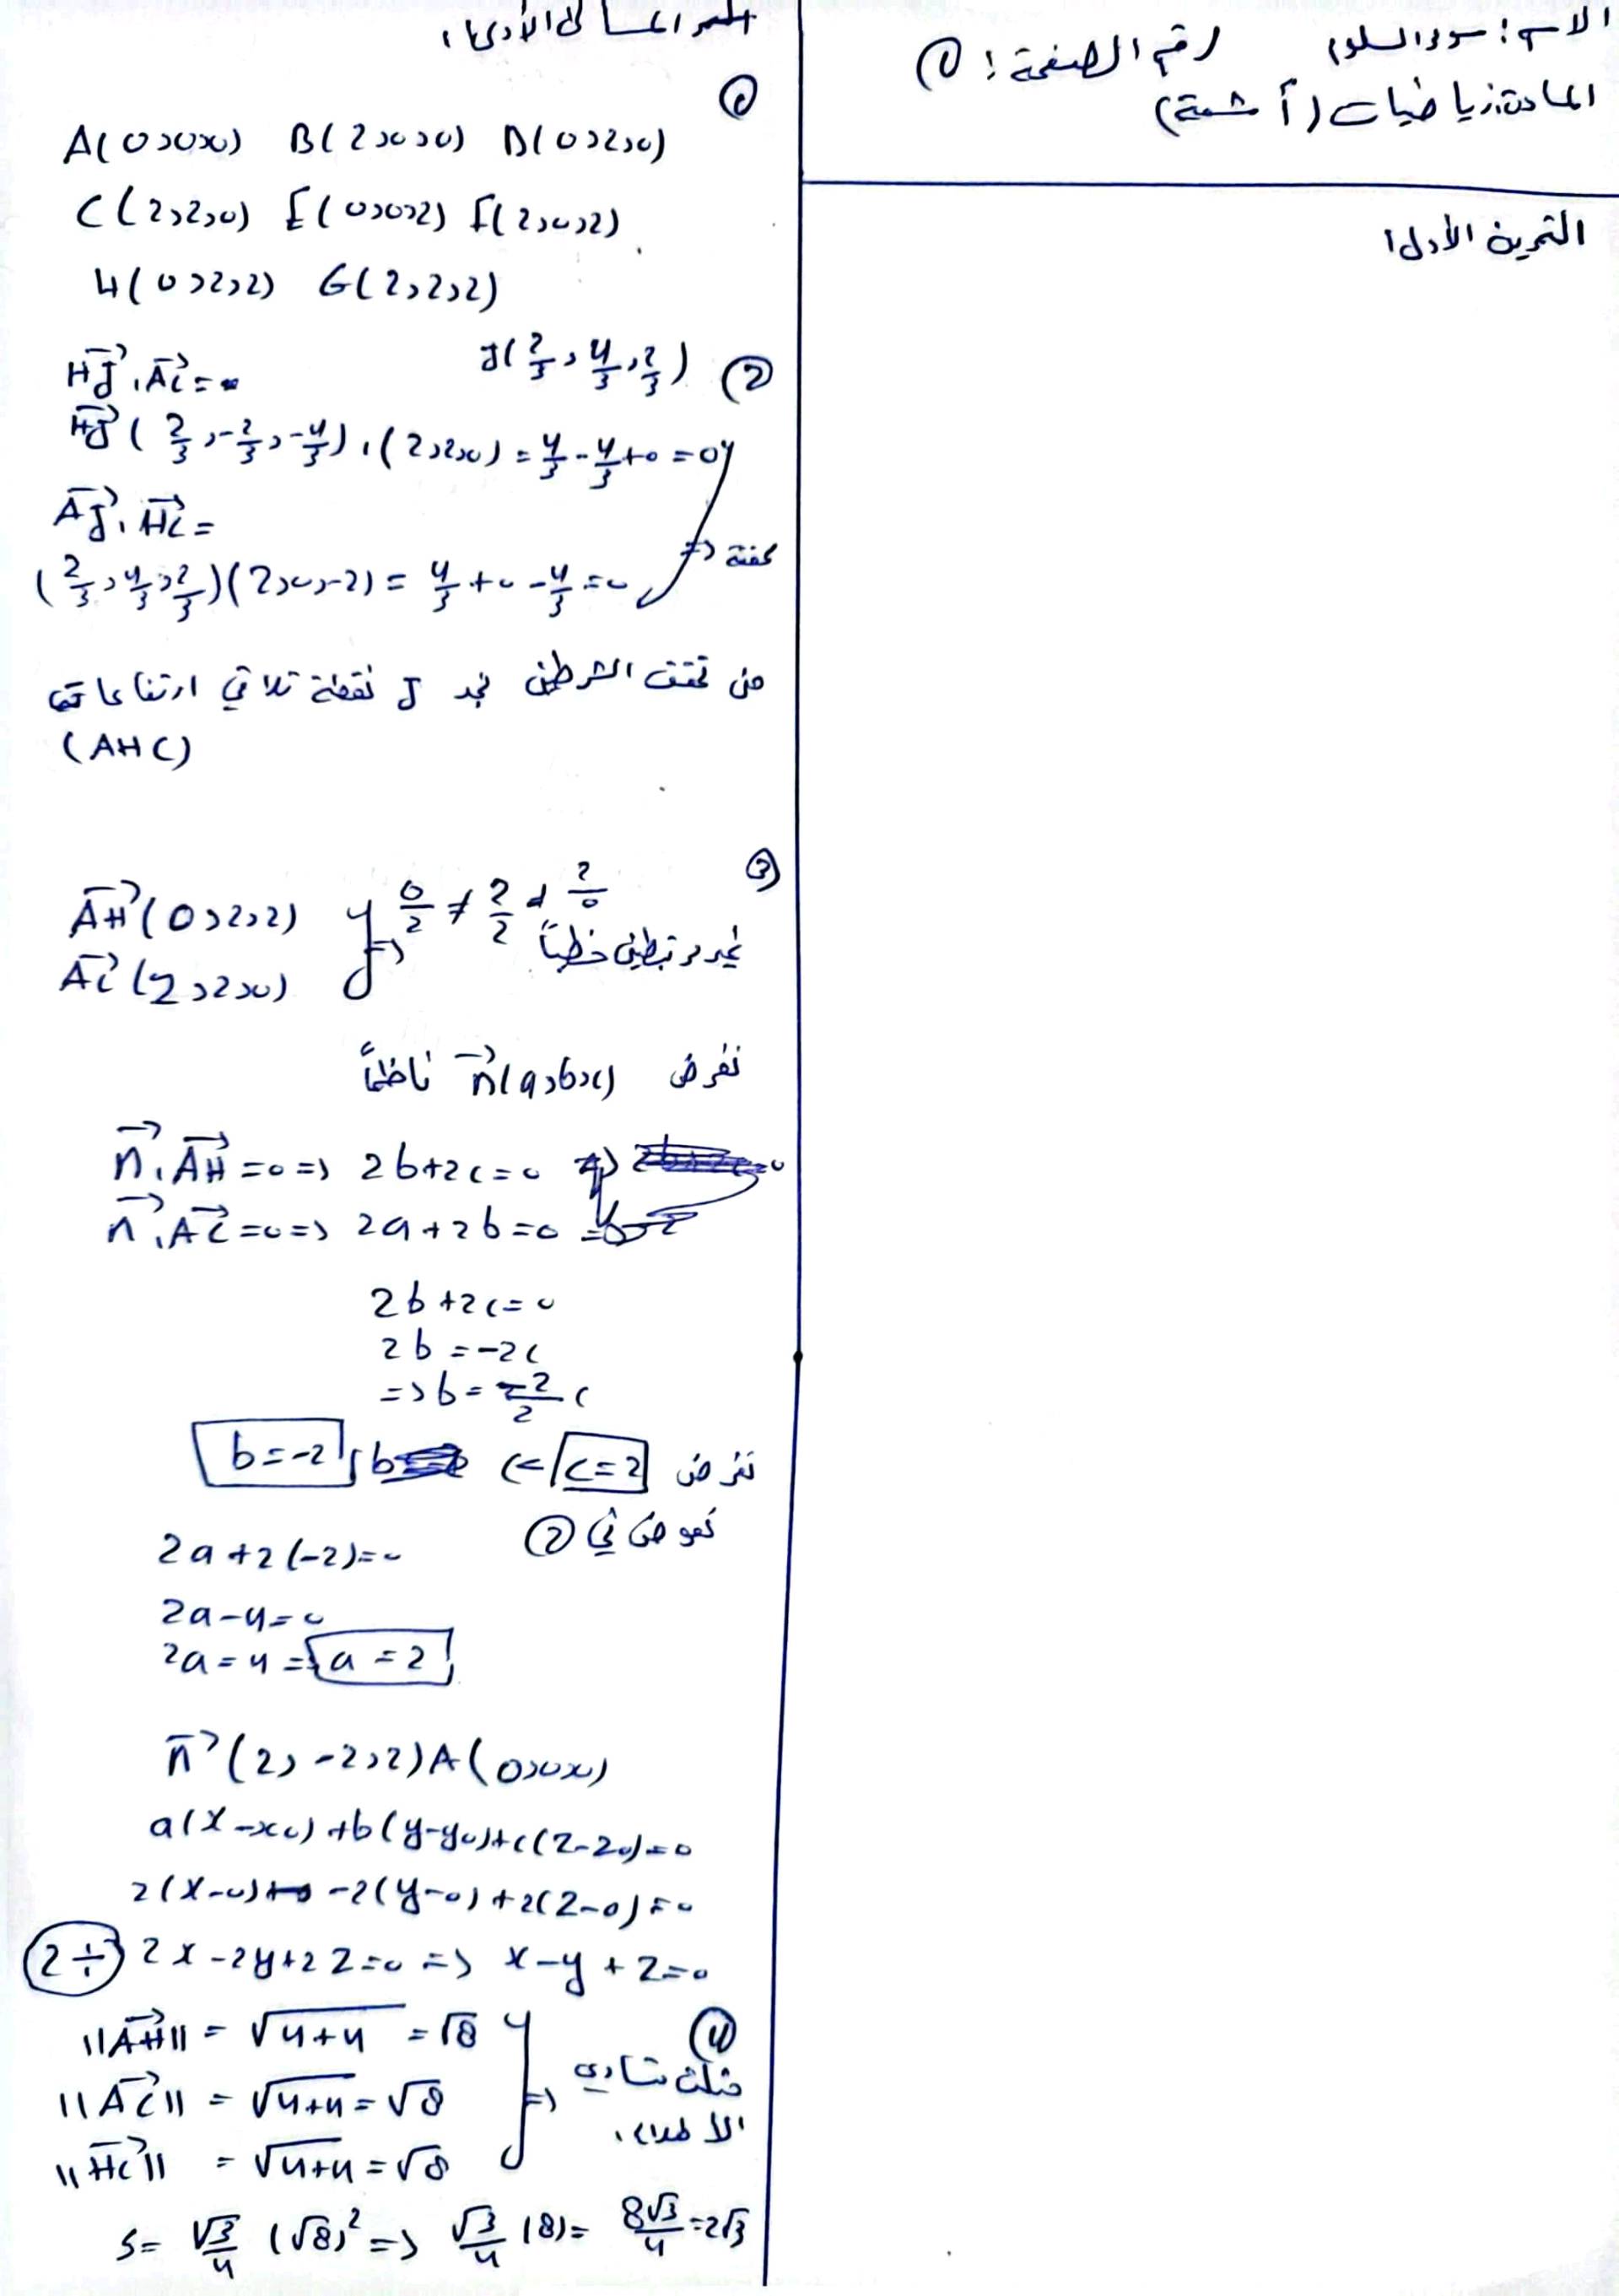 الاسم: سوار السلوم رقم الصفحة: ①
المادة: رياضيات (أ شمة)
التمرين الأول:
المسألة الأولى:
①
A(0,0,0) B(2,0,0) D(0,2,0)
C(2,2,0) E(0,0,2) F(2,0,2)
H(0,2,2) G(2,2,2)
② J(2/3, 4/3, 2/3)
HJ⃗ . AC⃗ =
HJ⃗ (2/3, -2/3, -4/3) . (2,2,0) = 4/3 - 4/3 + 0 = 0
AJ⃗ . HC⃗ =
(2/3, 4/3, 2/3)(2,0,-2) = 4/3 + 0 - 4/3 = 0
=> محققة
من تحقق الشرطين نجد J نقطة تلاقي ارتفاعات
(AHC)
③
AH⃗ (0,2,2)
AC⃗ (2,2,0)
=> 0/2 ≠ 2/2 ≠ 2/0
غير مرتبطين خطياً
نفرض n⃗(a,b,c) ناظماً
n⃗ . AH⃗ = 0 => 2b+2c=0
n⃗ . AC⃗ = 0 => 2a+2b=0
2b+2c=0
2b=-2c
=> b = -2/2 c
نفرض c=2 => b=-2
نعوض في ②
2a+2(-2)=0
2a-4=0
2a=4 => a=2
n⃗ (2,-2,2) A(0,0,0)
a(x-x0)+b(y-y0)+c(z-z0)=0
2(x-0) -2(y-0)+2(z-0)=0
2÷ 2x-2y+2z=0 => x-y+z=0
④
||AH⃗|| = √4+4 = √8
||AC⃗|| = √4+4 = √8
||HC⃗|| = √4+4 = √8
=> مثلث متساوي
الأضلاع
S= √3/4 (√8)² => √3/4 (8) = 8√3/4 = 2√3